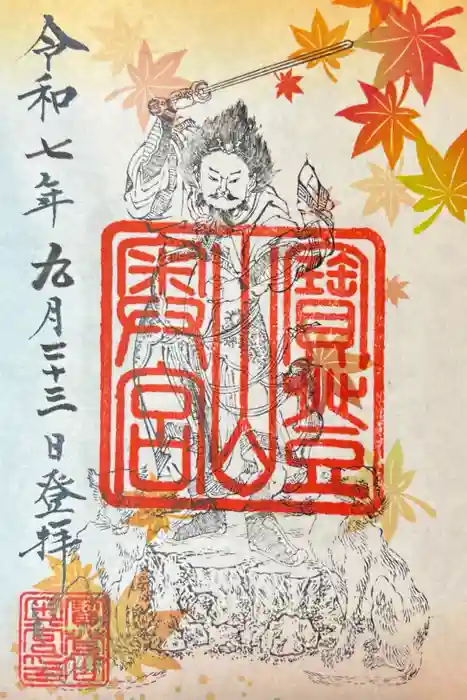 寳登
山
奥宮
令和七年九月二十三日登拝